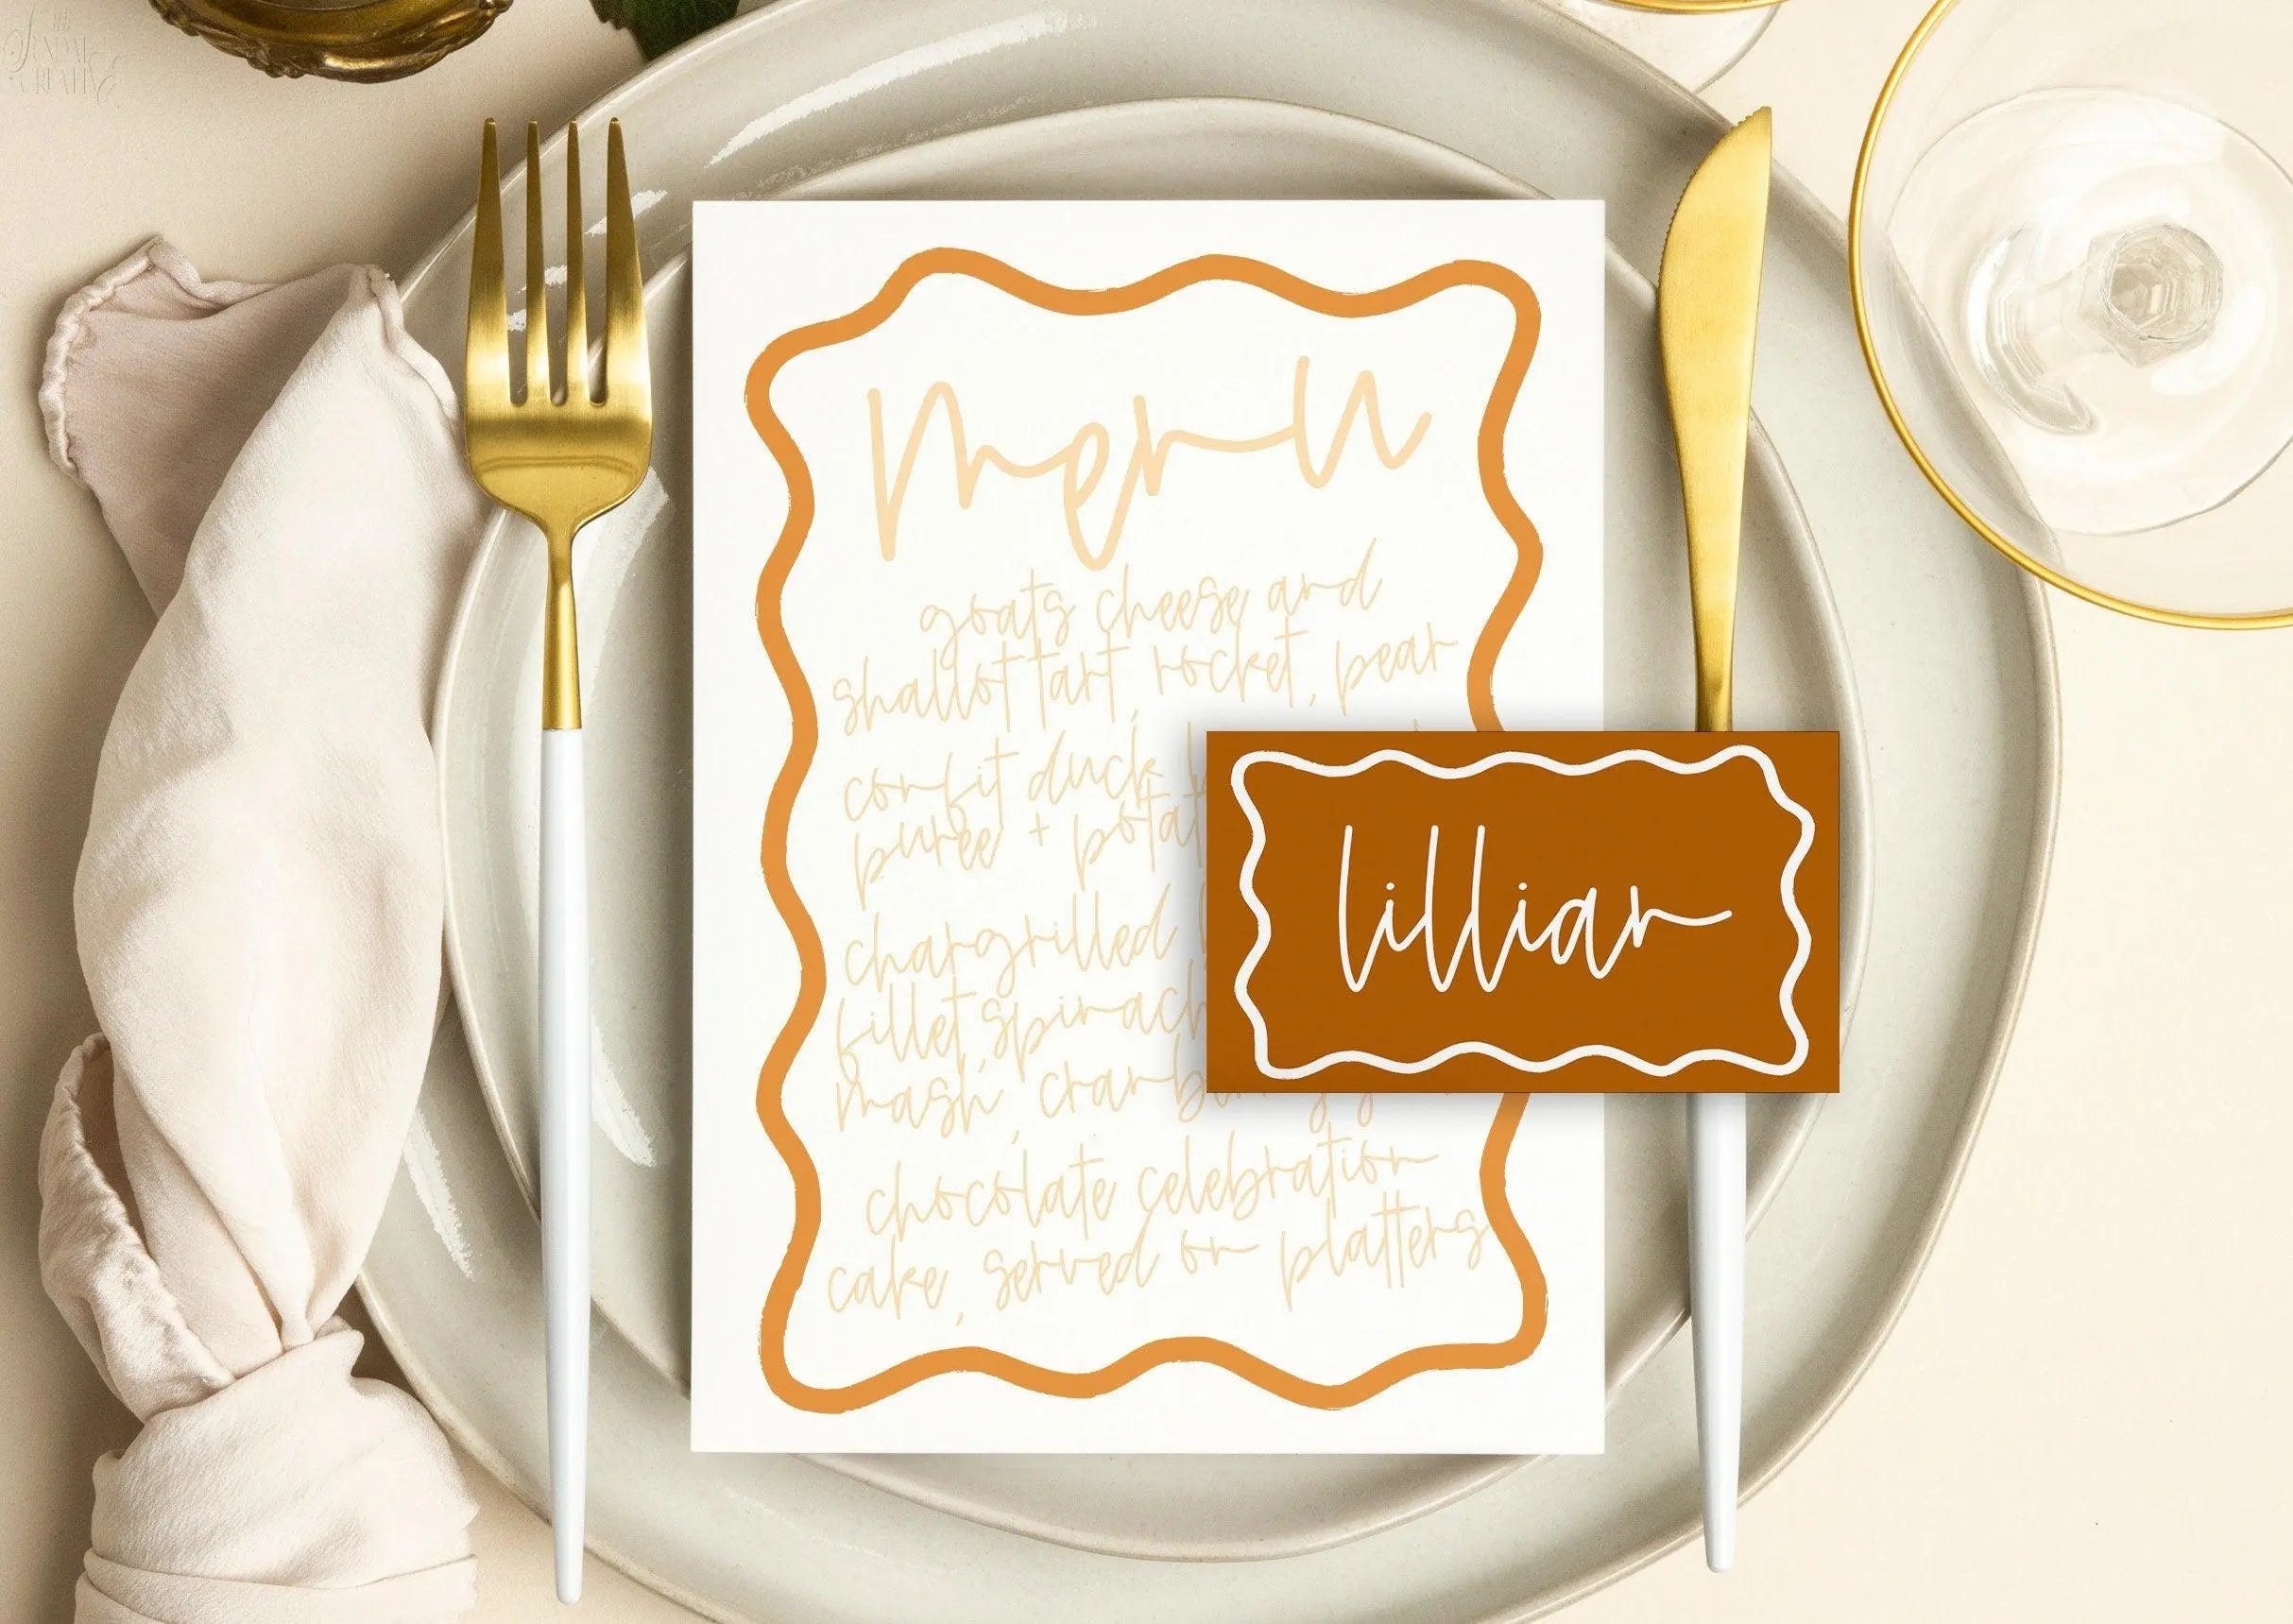 menu
goats cheese and
shallot tart, rocket, pear
confit duck
puree +
chargrilled
fillet, spinach
mash,
chocolate celebration
cake, served on platters
lillian